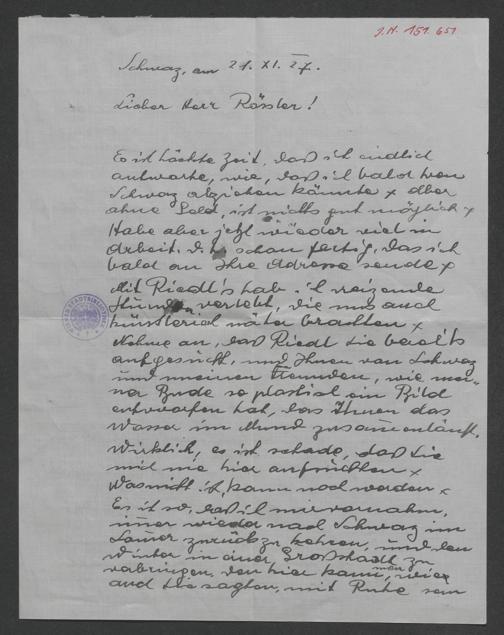 J.N. 151.651
Schwaz, am 21. XI. 27.
Lieber Herr Rössler!
Es ist höchte Zeit, daß ich endlich
antworte, wie, daß ich bald von
Schwaz abziehen könnte x aber
ohne Geld, ist nichts gut möglich x
Habe aber jetzt wieder viel in
Arbeit, schon fertig, das ich
bald an Ihre Adresse sende x
Mit Riedl's hab. 'l reizende
Stunden verlebt, die uns auch
künstlerich näher brachten x
Nehme an, daß Riedl Sie bereits
aufgesucht, und Ihnen von Schwaz
und meinen Fremden, wie mei-
ner Bude so plastisch ein Bild
entworfen hat, das Ihnen das
Wasser im Mund zusammenläuft.
Wirklich, es ist schade, daß Sie
mich nie hier aufsuchten x
Was nicht ist, kann noch werden x
Es ist so, daß ich mir vornahm,
immer wieder nach Schwaz im
Sommer zurück zu kehren, und den
Winter in einer Großstadt zu
verbringen, den hier kann man, wie
auch Sie sagten, mit Ruhe